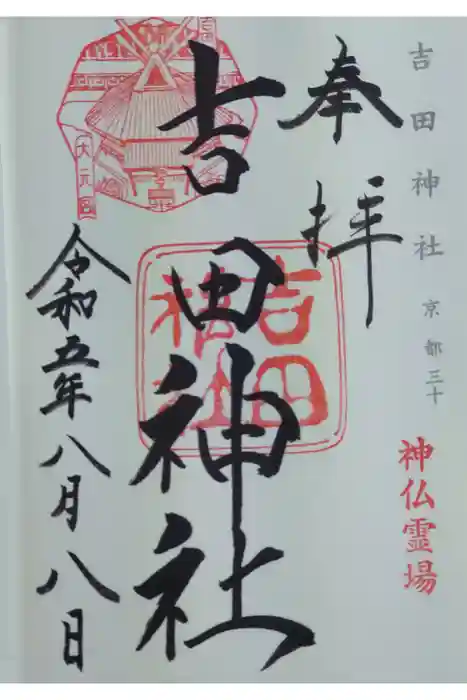 吉田神社 京都三十
神仏霊場
奉拝
吉田神社
吉田
神社
令和五年八月八日